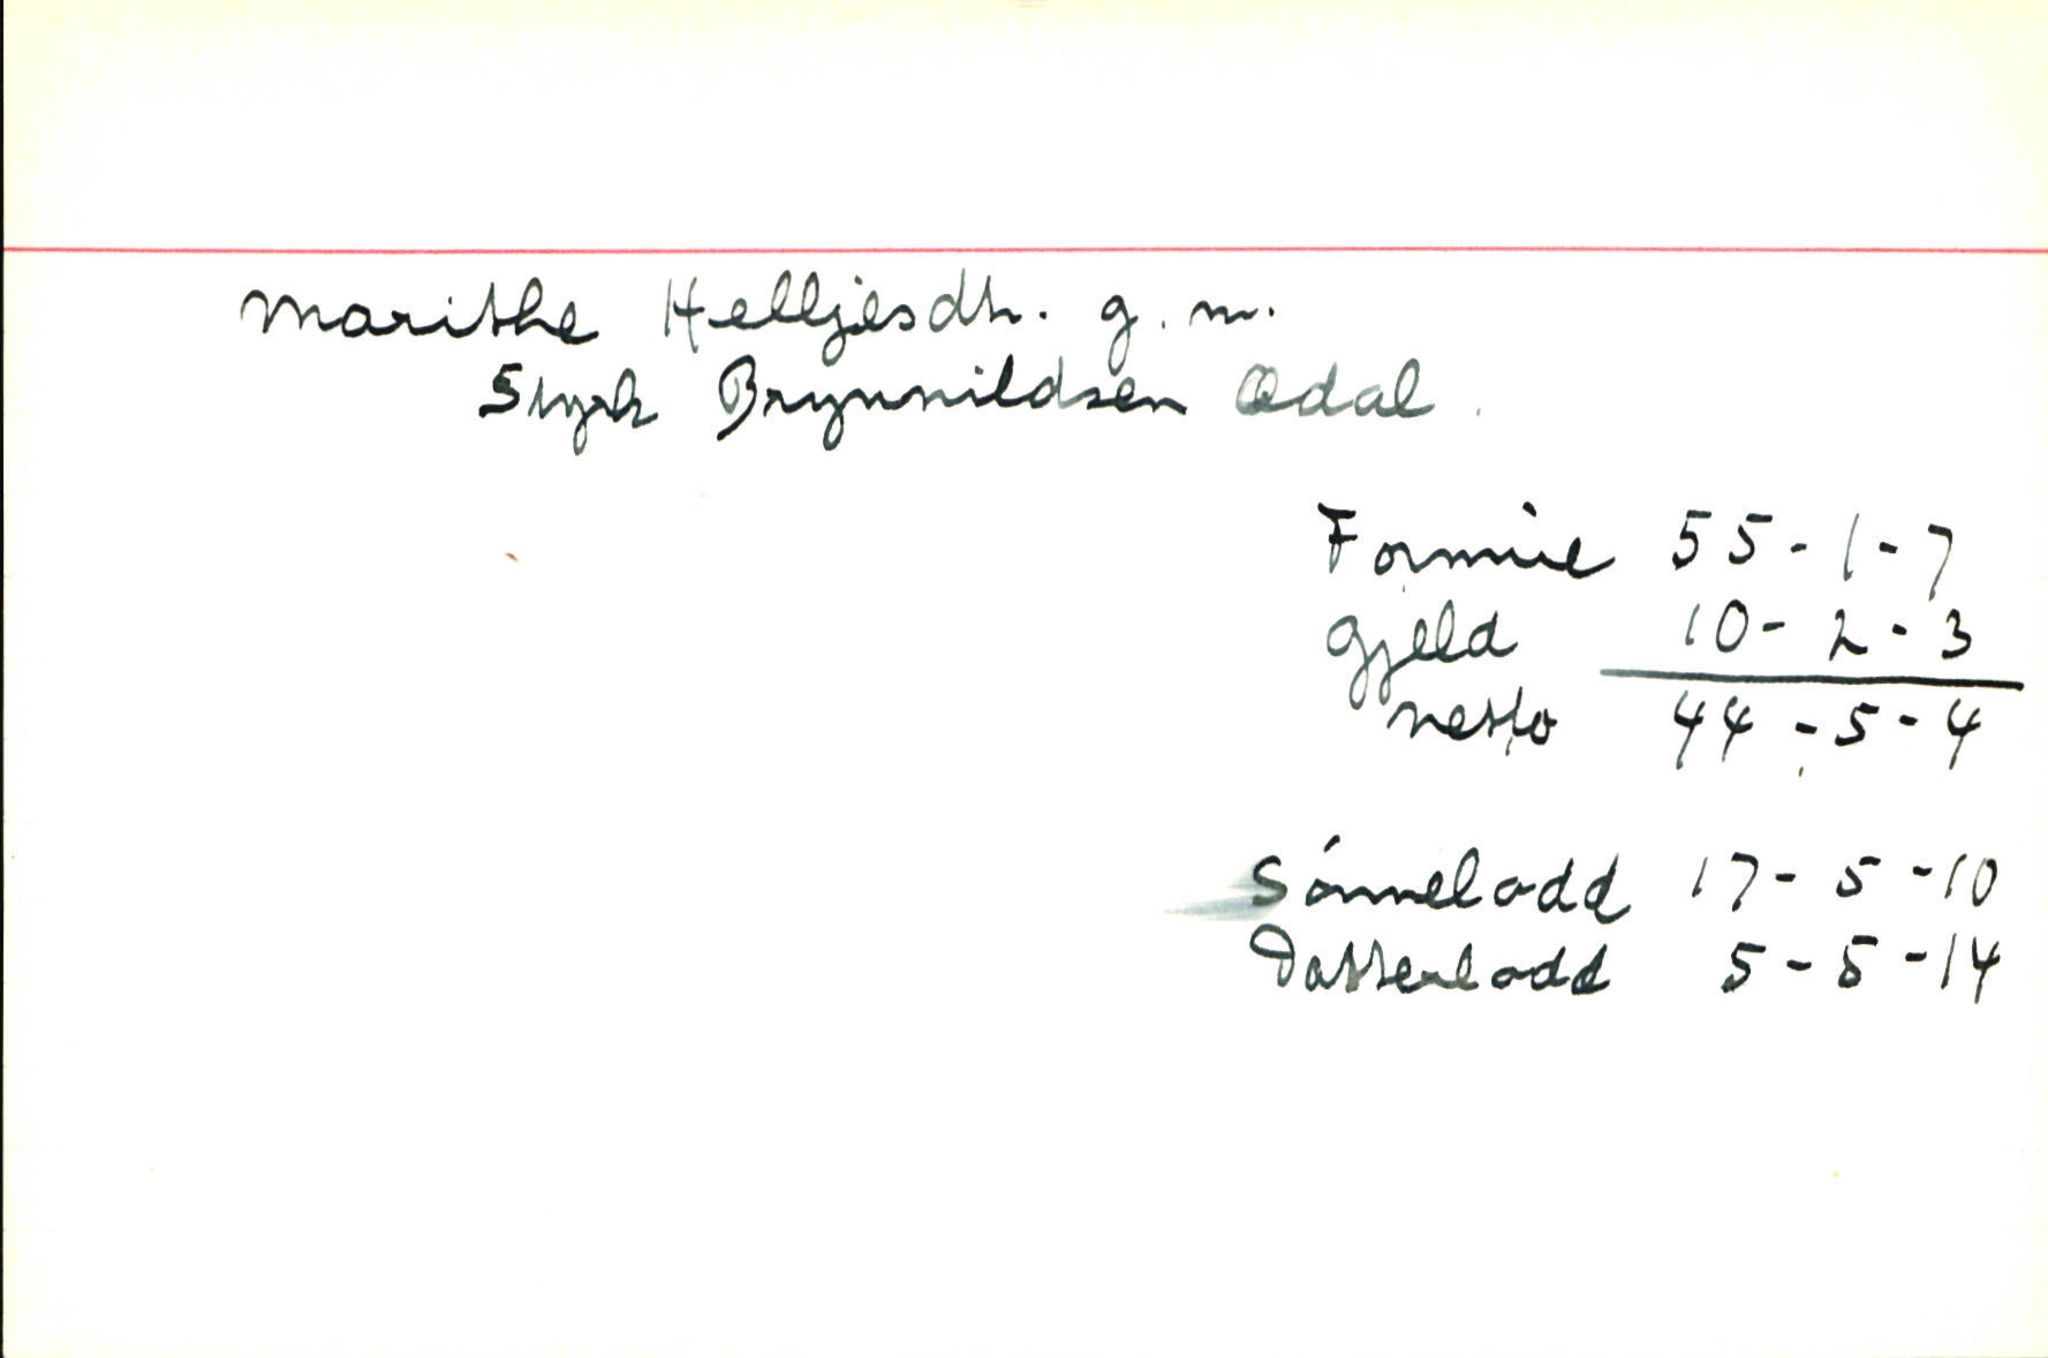 Marithe Helljesdtr. g. m.
Styrk Brynnildsen Ødal.
Formue 55-1-7
Gjeld 10-2-3
netto 44-5-4
Sónnelodd 17-5-10
Datterlodd 5-5-14